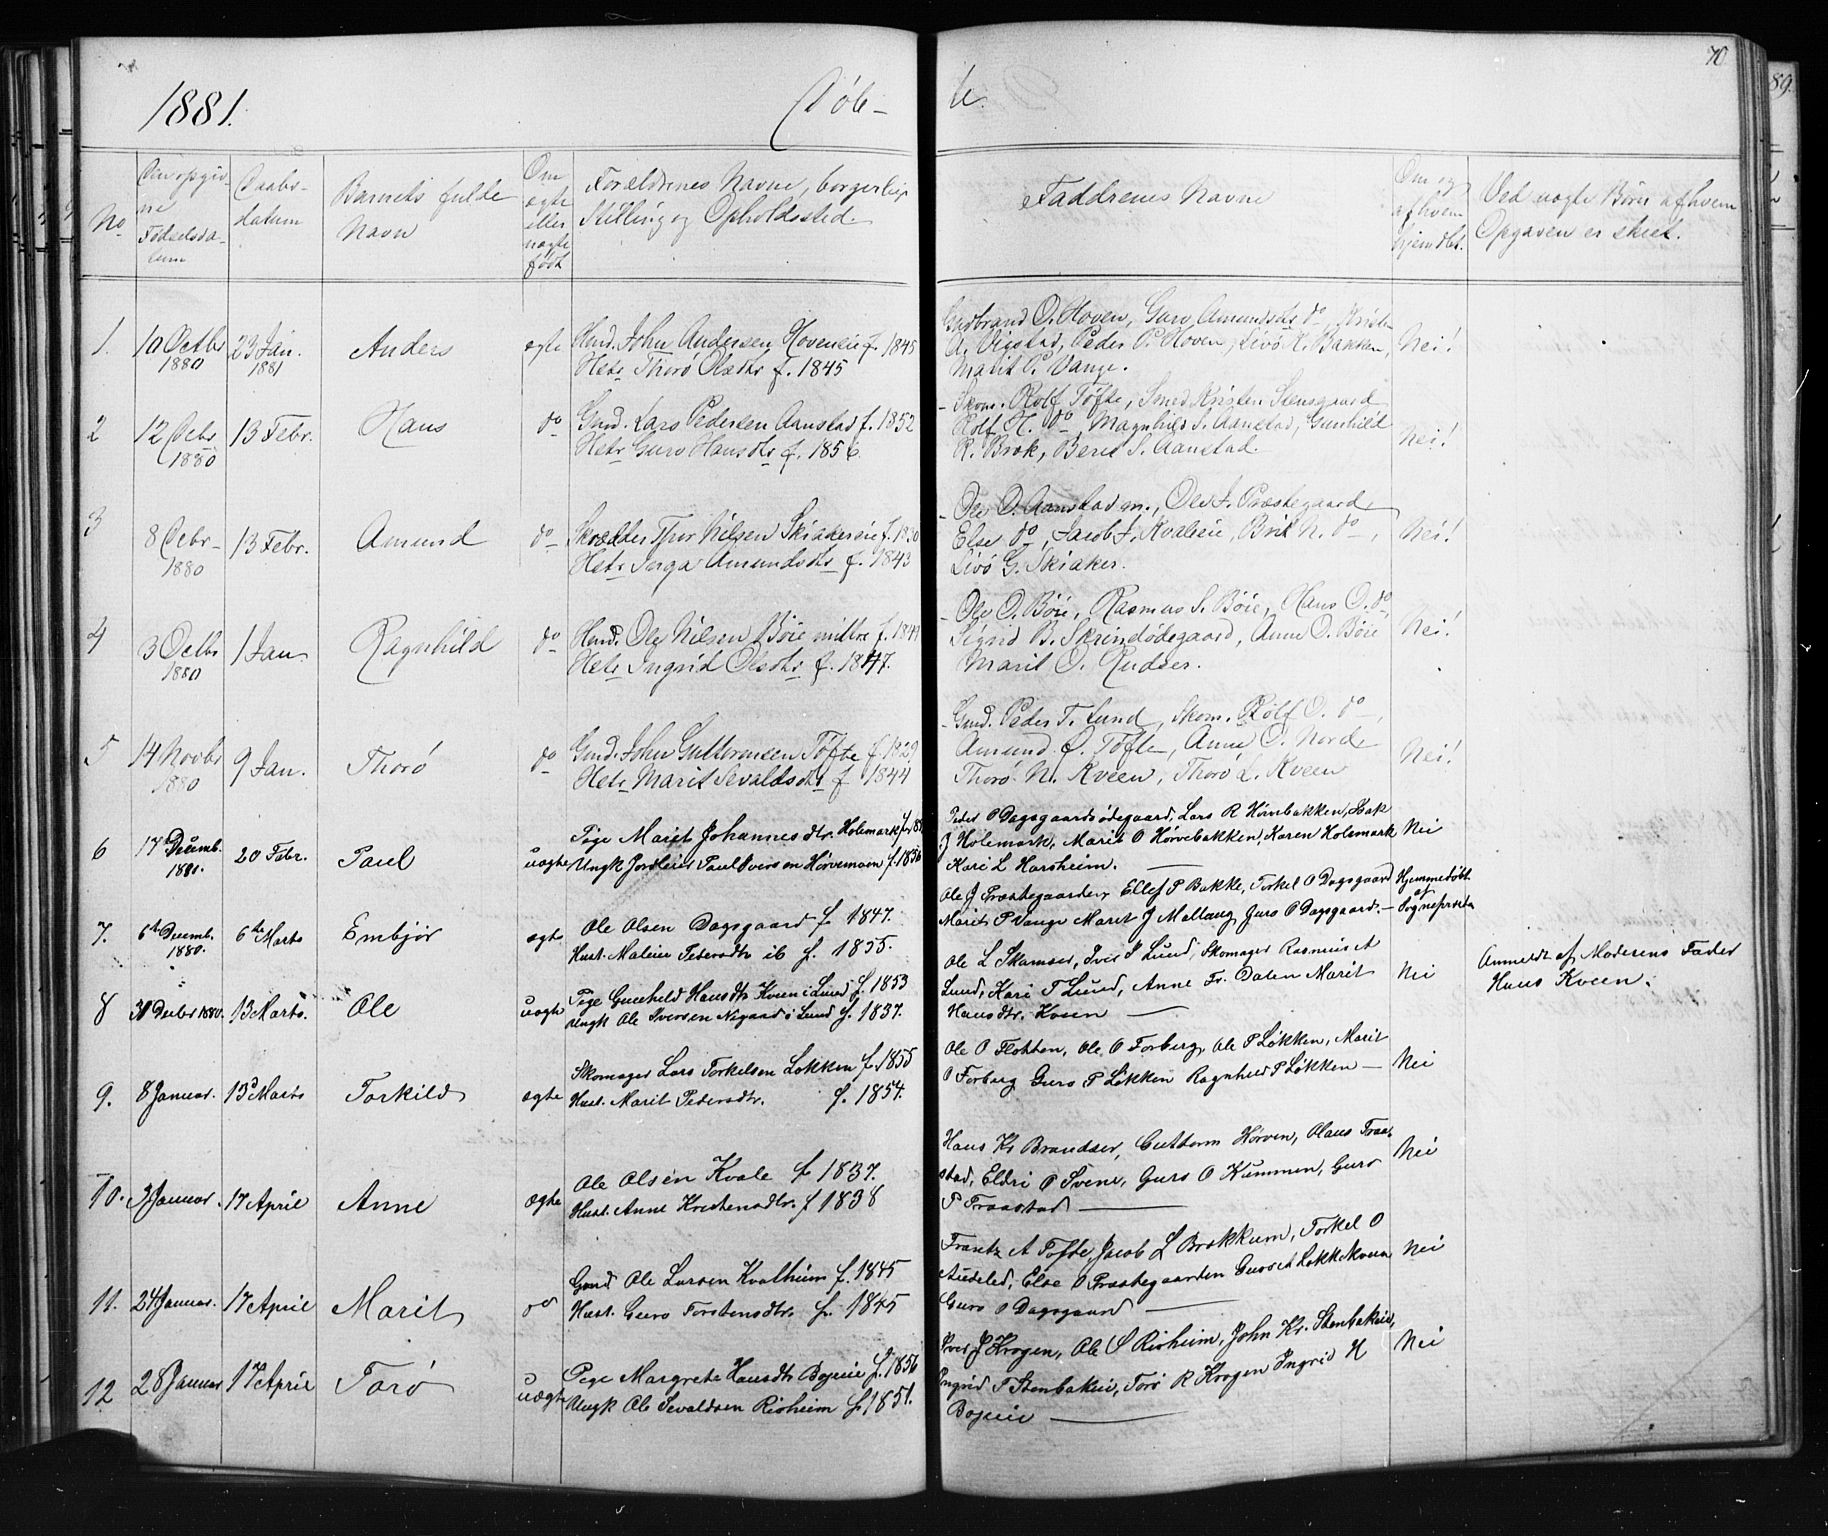 70
89.
1881.
Døb-
te.
No
Den opgiv-
ne
Fødselsda-
tum
Daabs-
datum
Barnets fulde
Navn
Om
ægte
eller
uægte
født
Forældrenes Navne, borgerlige
Stilling og Opholdssted
Faddrenes Navne
Om og
af hvem
hjemdbt.
Ved uægte Børn af hvem
Opgaven er skeet.
1. 10 Octbr 1880 23 Jan. 1881 Anders ægte
Huusm. John Andersen Hoveneie f. 1845
Hstr Thorø Olsdtr f. 1845
Gudbrand O. Hoven, Guro Amundsdtr do
A. Vigstad, Peder P. Hoven, Livø K. Bakken,
Marit P. Vange.
Nei!
2 12 Debr 1880 13 Febr. Hans do
Gmd. Lars Pedersen Aanstad f. 1852
Hstr Guro Hansdtr f. 1856.
Skom. Rolf Tøfte, Smed Kristen Stensgaard
Rolf H. do Magnhild S. Aanstad, Gunhild
R. Brok, Beret S. Aanstad.
Nei!
3 8 Debr 1880 13 Febr. Amund do
Skrædder Thor Nilsen Skiakereie f. 1830
Hstr Inga Amundsdtr f. 1843
Ole O. Aanstad m., Ole J. Præstegaard
Else do, Jacob J. Kvaleeie, Brit N. do,
Livø G. Skiaker.
Nei!
4 3 Octbr 1880 1 Jan. Ragnhild do
Huusm. Ole Nilsen Bøie mittre f.
Hstr Ingrid Olsdtr f. 1847.
Ole O. Bøie, Rasmus S. Bøie, Hans O. do
Sigrid B. Skrindødegaard, Anne O. Bøie
Marit O. Rudser.
Nei!
5 14 Novbr 1880 9 Jan. Thorø do
Gmd. John Guttormsen Tøfte f. 1829
Hstr Marit Sevaldsdtr f 1844
Gmd. Peder T. Lund, Skom. Rolf O. do,
Amund O. Tøfte, Anne O. Norde
Thorø N. Kveen, Thorø L. Kveen
Nei!
6 17 Decemb. 1880. 20 Febr. Paul uægte
Pige Marit Johannesdtr. Holemark
Ungk Paul Iversen Hørvemoen f. 1856
Peder O Dagsgaardsødegaard, Lars R Hørvebakken, Isak
J Holemark, Marit O Hørvebakken, Karen Holemark
Kari L Harsheim.
Nei
7. 6te Decemb. 1880. 6te Marts Embjør ægte
Ole Olsen Dagsgaard f. 1847.
Hust. Malene Pedersdtr ib f. 1855.
Ole J Præstegaarden, Ellef P Bakke, Torkel O Dagsgaard
Marit P Vange Marit J Mallaug, Guro O Dagsgaard.
Hjemmedøbt af Sognepræsten
8 30 Decbr 1880. 13 Marts. Ole uægte
Pige Gunhild Hansdtr Kveen i Lund f. 1853
Ungk Ole Iversen Nigaard i Lund f. 1837.
Ole L Skamser, Iver P Lund, Skomager Rasmus A
Lund, Kari T Lund, Anne Fr. Dalen Marit
Hansdtr. Kveen
Nei
Anmeldt af Moderens Fader
Hans Kveen.
9. 8 Januar. 13 Marts Torkild ægte
Skomager Lars Torkelsen Løkken f. 1855
Hust. Marit Pedersdtr. f. 1854.
Ole O Flotten, Ole O Forberg, Ole P Løkken, Marit
O Forberg Guro P Løkken Ragnhild P Løkken
Nei
10. Januar. 17 April Anne ægte
Ole Olsen Kvale f. 1837.
Hust. Anne Kristensdtr. f 1838
Hans Kr Brandser, Guttorm Hørven, Olaus Fraa-
stad, Eldri P Svene, Guro O Kummen, Guro
P Fraastad
Nei
11. 24 Januar. 17 April Marit do
Gmd Ole Larsen Kvalheim f. 1845
Hust. Guro Torstensdtr. f. 1845
Frantz A Tofte, Jacob L Brækkum, Torkel O
Audeled, Else O Præstegaarden
Guro O Dagsgaard
Nei
12 28 Januar 17 April Torø uægte
Pige Margrete Hansdtr Bojeeie f. 1856
Ungk Ole Sevaldsen Risheim f. 1851.
Iver J Krogen, Ole S Risheim, John Kr. Stenbakeie,
Ingrid T Stenbakeie, Torø R Krogen Ingrid H
Bojeeie
Nei